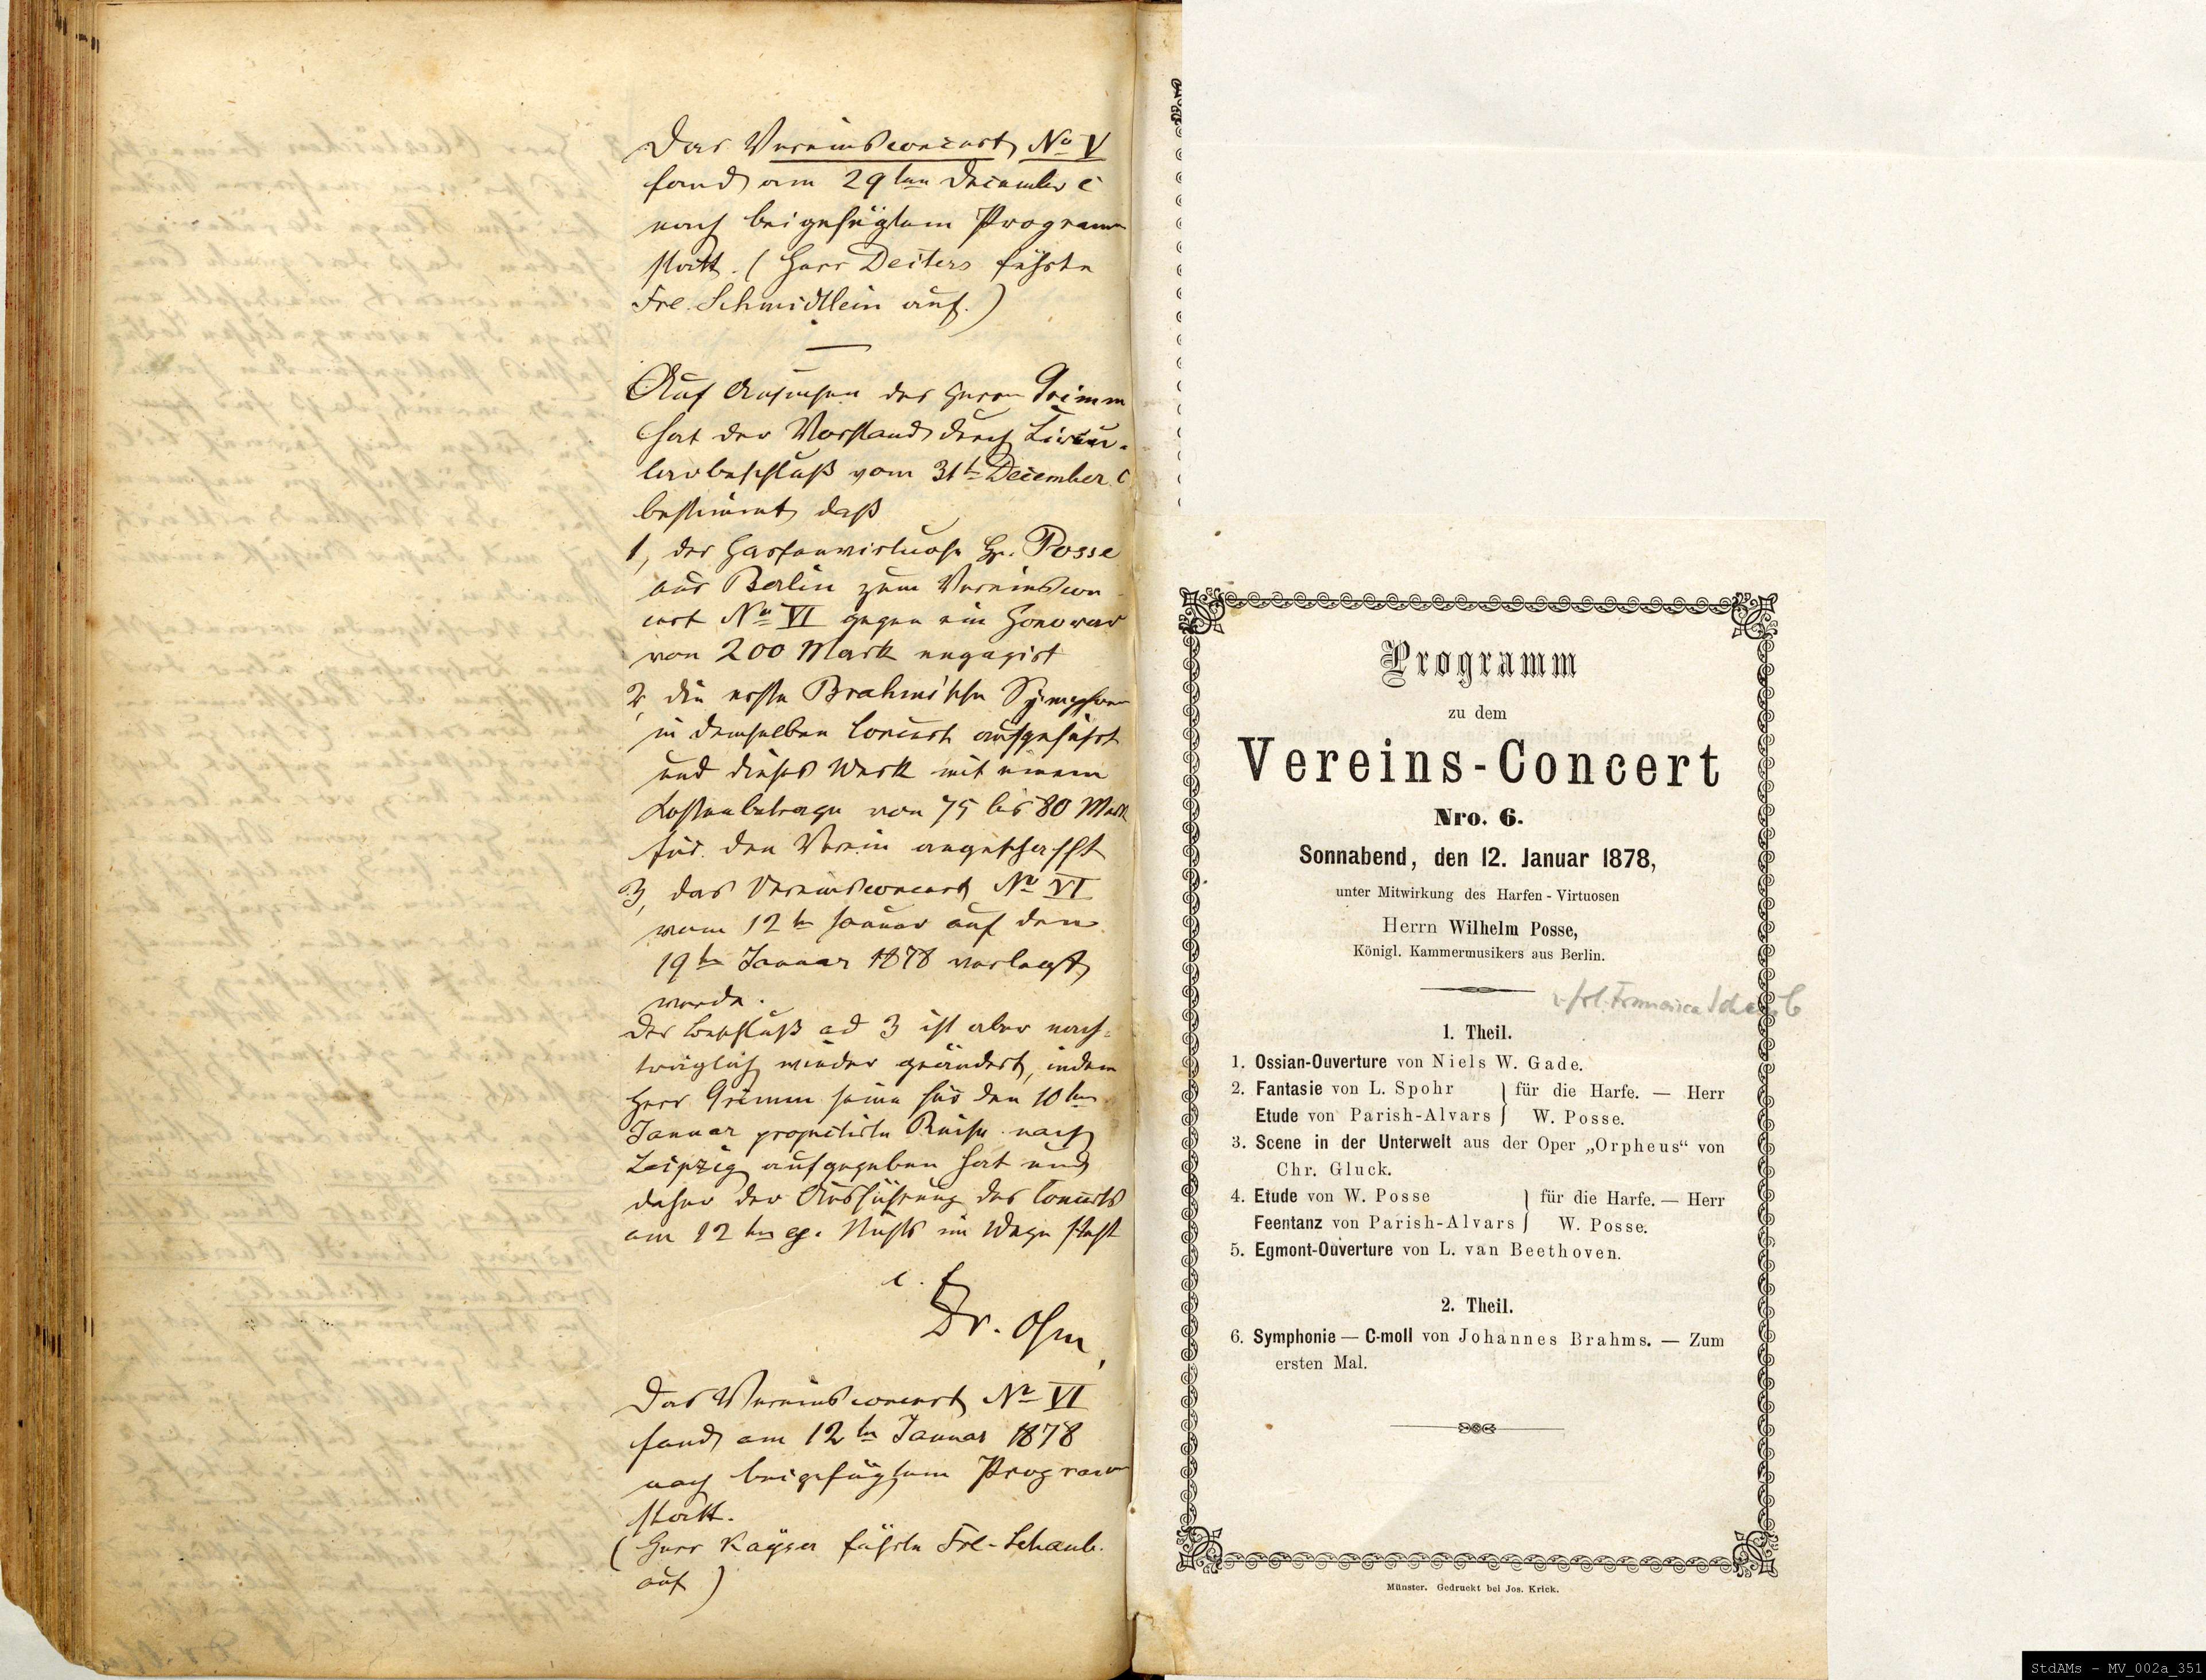 Das Vereinsconcert No V
fand am 29ten December c
nach beigefügtem Programm
statt. (Herr Deiters führte
Frl. Schmidtlein auf.)
Auf Ansuchen des Herrn Grimm
hat der Vorstand durch Circu-
larbeschluß vom 31t December c
bestimmt daß
1, der Harfenvirtuose Hr. Posse
aus Berlin zum Vereinscon
cert No VI gegen ein Honorar
von 200 Mark engagirt
2, die erste Brahms'sche Symphonie
in demselben Concert aufgeführt
und dieses Werk mit einem
Kostenbetrage von 75 bis 80 Mark
für den Verein angeschafft
3, das Vereinsconcert No VI
vom 12ten Januar auf den
19ten Januar 1878 verlegt
werde.
Der Beschluß ad 3 ist aber nach-
träglich wieder geändert, indem
Herr Grimm seine für den 10ten
Januar projectirte Reise nach
Leipzig aufgegeben hat und
daher der Ausführung des Concerts
am 12ten Nichts im Wege steht
Dr. Ohm
Das Vereinsconcert No VI
fand am 12ten Januar 1878
nach beigefügtem Programm
statt.
(Herr Kayser führte Frl. Schaub.
auf)
Programm
zu dem
Vereins-Concert
Nro. 6.
Sonnabend, den 12. Januar 1878,
unter Mitwirkung des Harfen-Virtuosen
Herrn Wilhelm Posse,
Königl. Kammermusikers aus Berlin.
Frl. Francisca Schaub
1. Theil.
1. Ossian-Ouverture von Niels W. Gade.
2. Fantasie von L. Spohr } für die Harfe. — Herr
Etude von Parish-Alvars } W. Posse.
3. Scene in der Unterwelt aus der Oper „Orpheus“ von
Chr. Gluck.
4. Etude von W. Posse } für die Harfe. — Herr
Feentanz von Parish-Alvars } W. Posse.
5. Egmont-Ouverture von L. van Beethoven.
2. Theil.
6. Symphonie — C-moll von Johannes Brahms. — Zum
ersten Mal.
Münster. Gedruckt bei Jos. Krick.
StdAMs - MV_002a_351